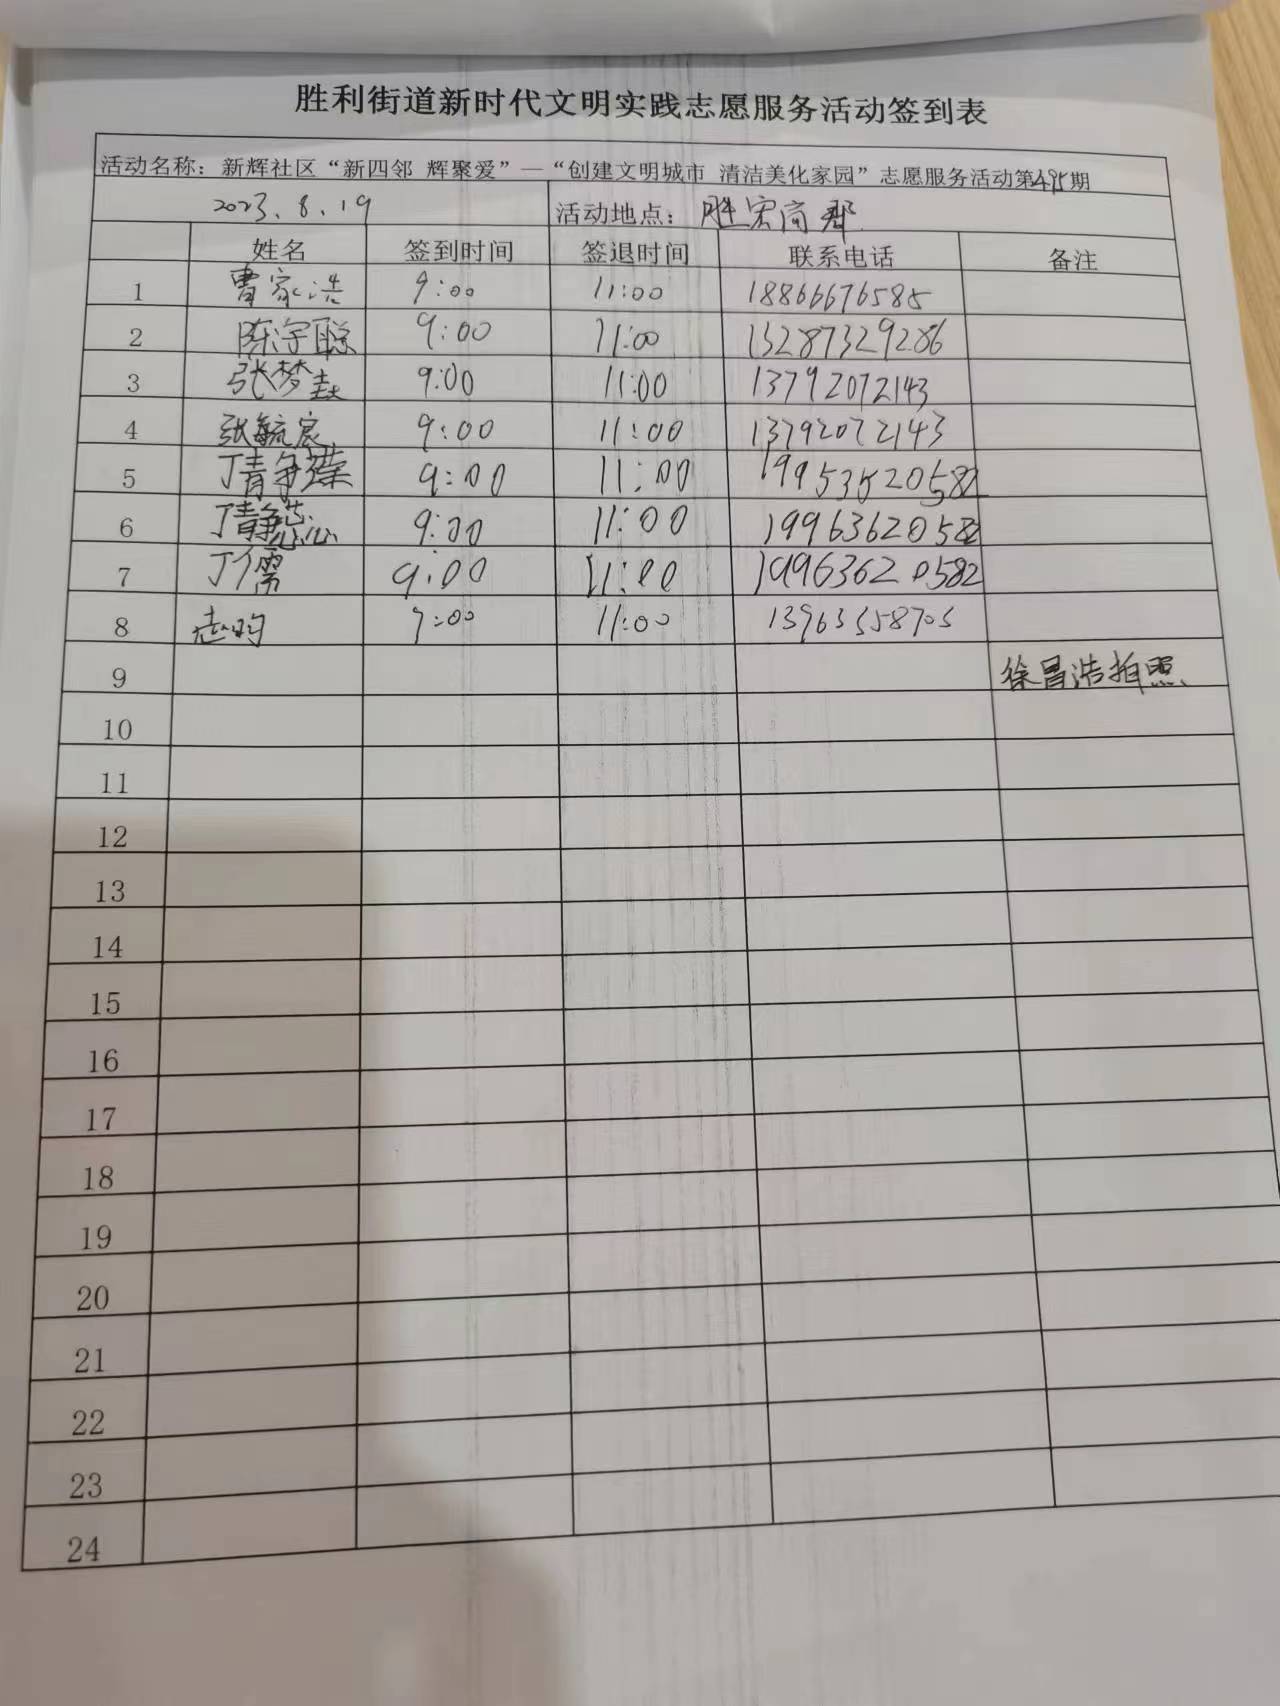 胜利街道新时代文明实践志愿服务活动签到表
活动名称：新辉社区“新四邻 辉聚爱”—“创建文明城市 清洁美化家园”志愿服务活动第495期
2023.8.19 活动地点：胜宏商都
姓名 签到时间 签退时间 联系电话 备注
1 曹家浩 9:00 11:00 18866676585
2 陈宇聪 9:00 11:00 13287329286
3 张梦 9:00 11:00 13792072143
4 张毓宸 9:00 11:00 13792072143
5 丁静 9:00 11:00 19953520582
6 丁静 9:00 11:00 19963620582
7 丁儒 9:00 11:00 19963620582
8 9:00 11:00 13963558705
9 徐昌浩拍照
10
11
12
13
14
15
16
17
18
19
20
21
22
23
24